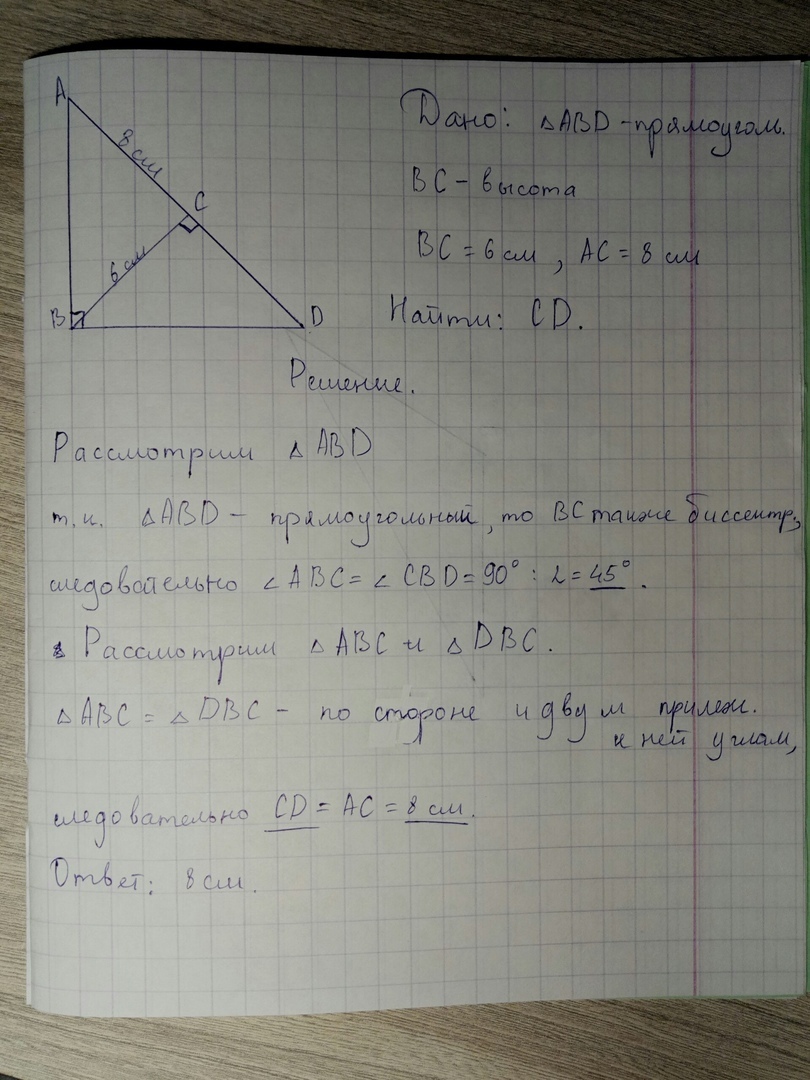 A
8 см
C
6 см
B
D
Дано: △ABD - прямоугол.
BC - высота
BC = 6 см, AC = 8 см
Найти: CD.
Решение.
Рассмотрим △ ABD
т.к. △ABD - прямоугольный, то BC также биссектр,
следовательно ∠ABC = ∠CBD = 90° : 2 = 45°.
Рассмотрим △ ABC и △ DBC.
△ ABC = △ DBC - по стороне и двум прилеж.
к ней углам,
следовательно CD = AC = 8 см.
Ответ: 8 см.